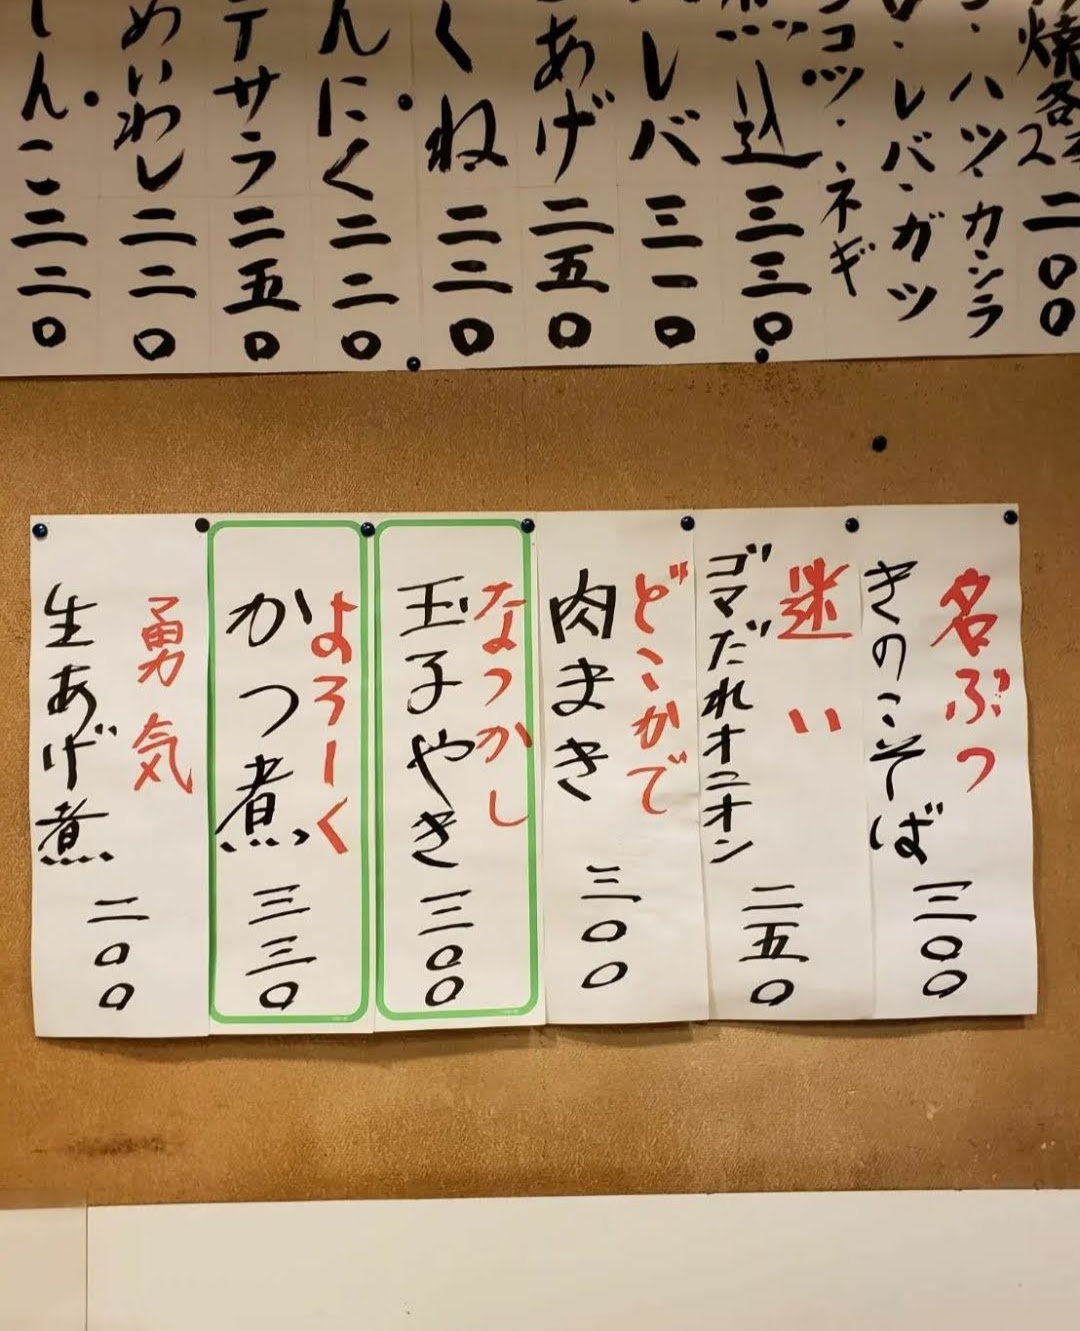 焼各
二〇〇
ハツ・カシラ
レバ・ガツ
コツ・ネギ
込 三三〇
レバ 三一〇
あげ 二五〇
くね 二二〇
んにく 二二〇
テサラ 二五〇
めいわし 二二〇
んこ 二二〇
名ぶつ
きのこそば 三〇〇
迷い
ゴマだれオニオン 二五〇
どこかで
肉まき 三〇〇
なつかし
玉子やき 三〇〇
よろーく
かつ煮 三三〇
勇気
生あげ煮 二〇〇